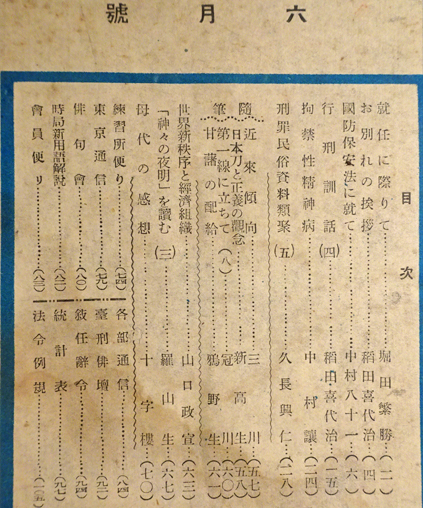 六月號
目次
就任に際りて……堀田繁勝…(二)
お別れの挨拶……稻田喜代治…(四)
國防保安法に就て……中村八十一…(六)
行刑訓話(四)……稻田喜代治…(一五)
拘禁性精神病……中村讓…(二四)
刑罪民俗資料類聚(五)……久長興仁…(二八)
隨筆
近來傾向……三川…(五七)
日本刀と正義の觀念……新高生…(五八)
第一線に立ちて(八)……冠川…(六〇)
甘藷の配給……鴉野生…(六一)
世界新秩序と經濟組織……山口政宣…(六三)
「神々の夜明」を讀む(三)……羅山生…(六七)
母代の感想……十字樓…(七〇)
練習所便り……(七四)
東京通信……(七九)
俳句會……(八〇)
時局新用語解說……(八二)
會員便り……(八三)
各部通信……(八四)
臺刑俳壇……(九二)
敍任辭令……(九四)
統計表……(九七)
法令例規